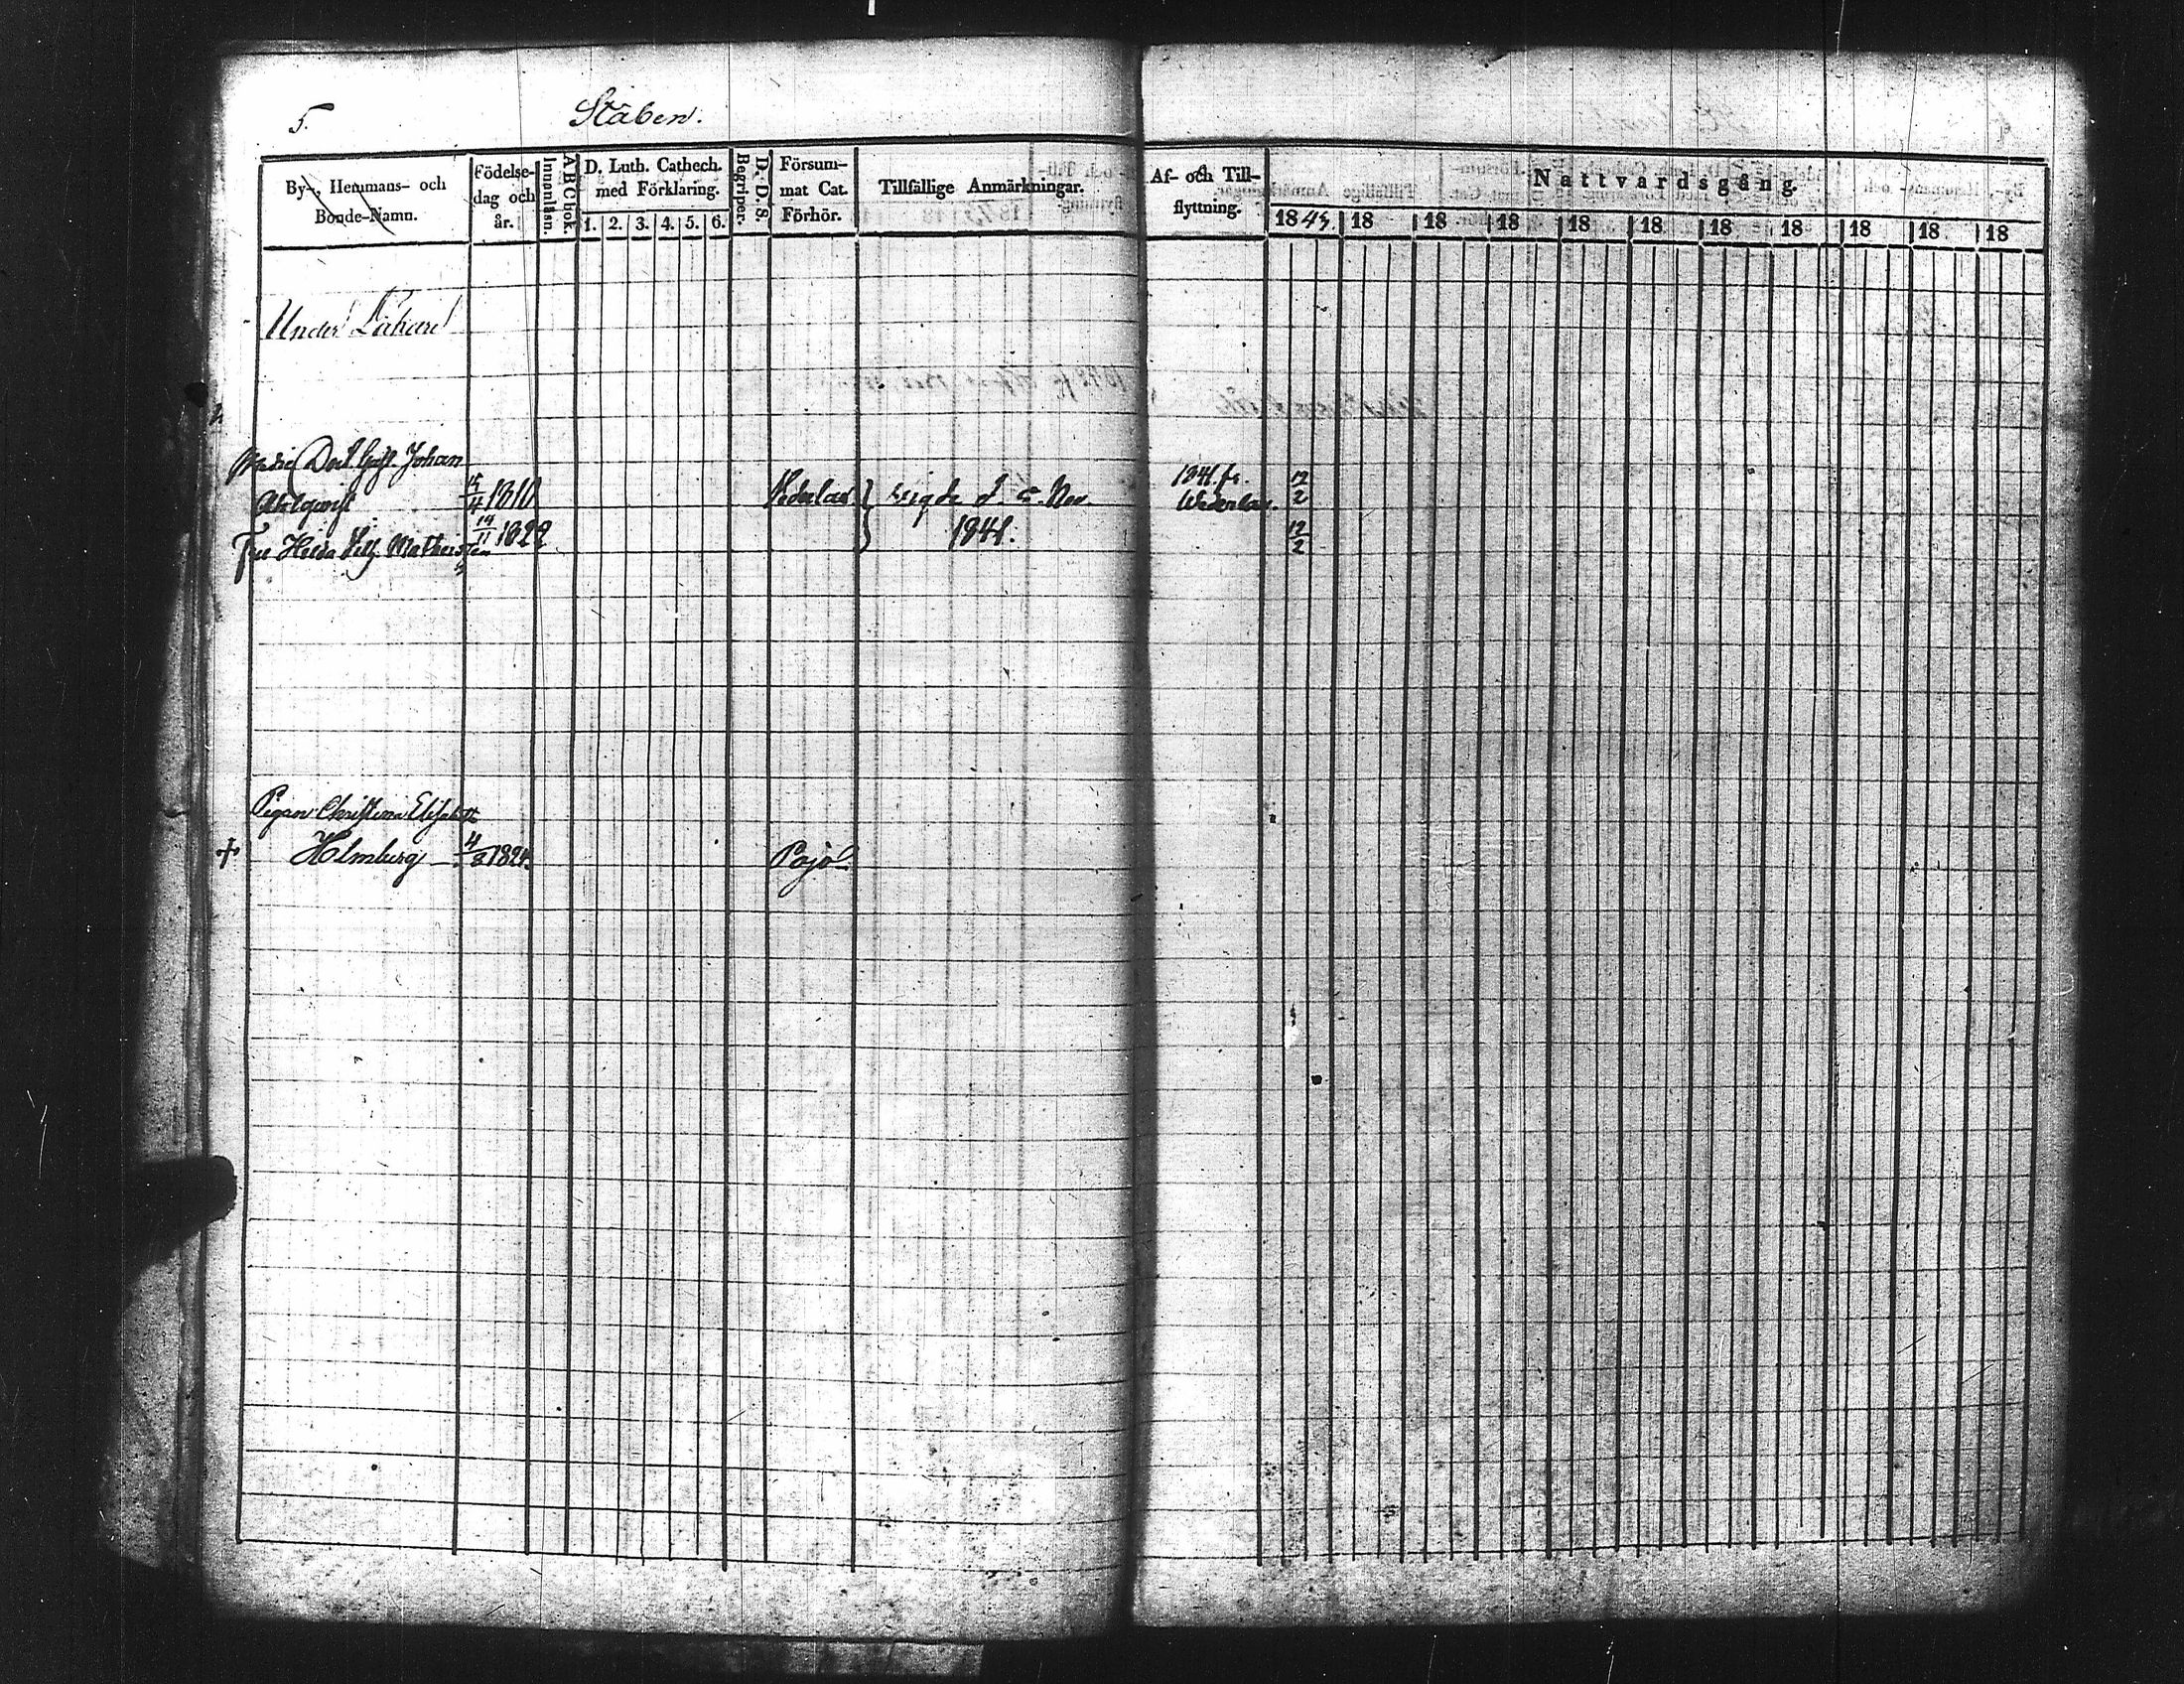 5.
Staben.
By-, Hemmans- och
Bonde-Namn.
Födelse-
dag och
år.
A B C bok.
Innanläsn.
D. Luth. Cathech.
med Förklaring.
1. 2. 3. 4. 5. 6.
D. D. S.
Begriper.
Försum-
mat Cat.
Förhör.
Tillfällige Anmärkningar.
Af- och Till-
flyttning.
Nattvardsgång.
1843. 18 18 18 18 18 18 18 18 18 18
Under Läkare
Medic Doct. Gust. Johan
Ahlqwist 15/4 1810 Wederlax
vigde d. 5 Nov.
1841.
1841 fr.
Wederlax.
12/2
Fru Hedda Matheiszen 14/11 1822
12/2
Pigan Christina Elisabeth
+ Holmberg 4/3 1824. Pojo